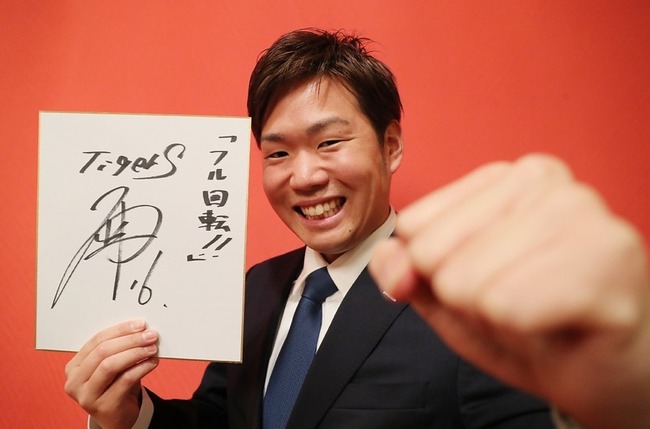 「フル回転!!」
TigerS
16.